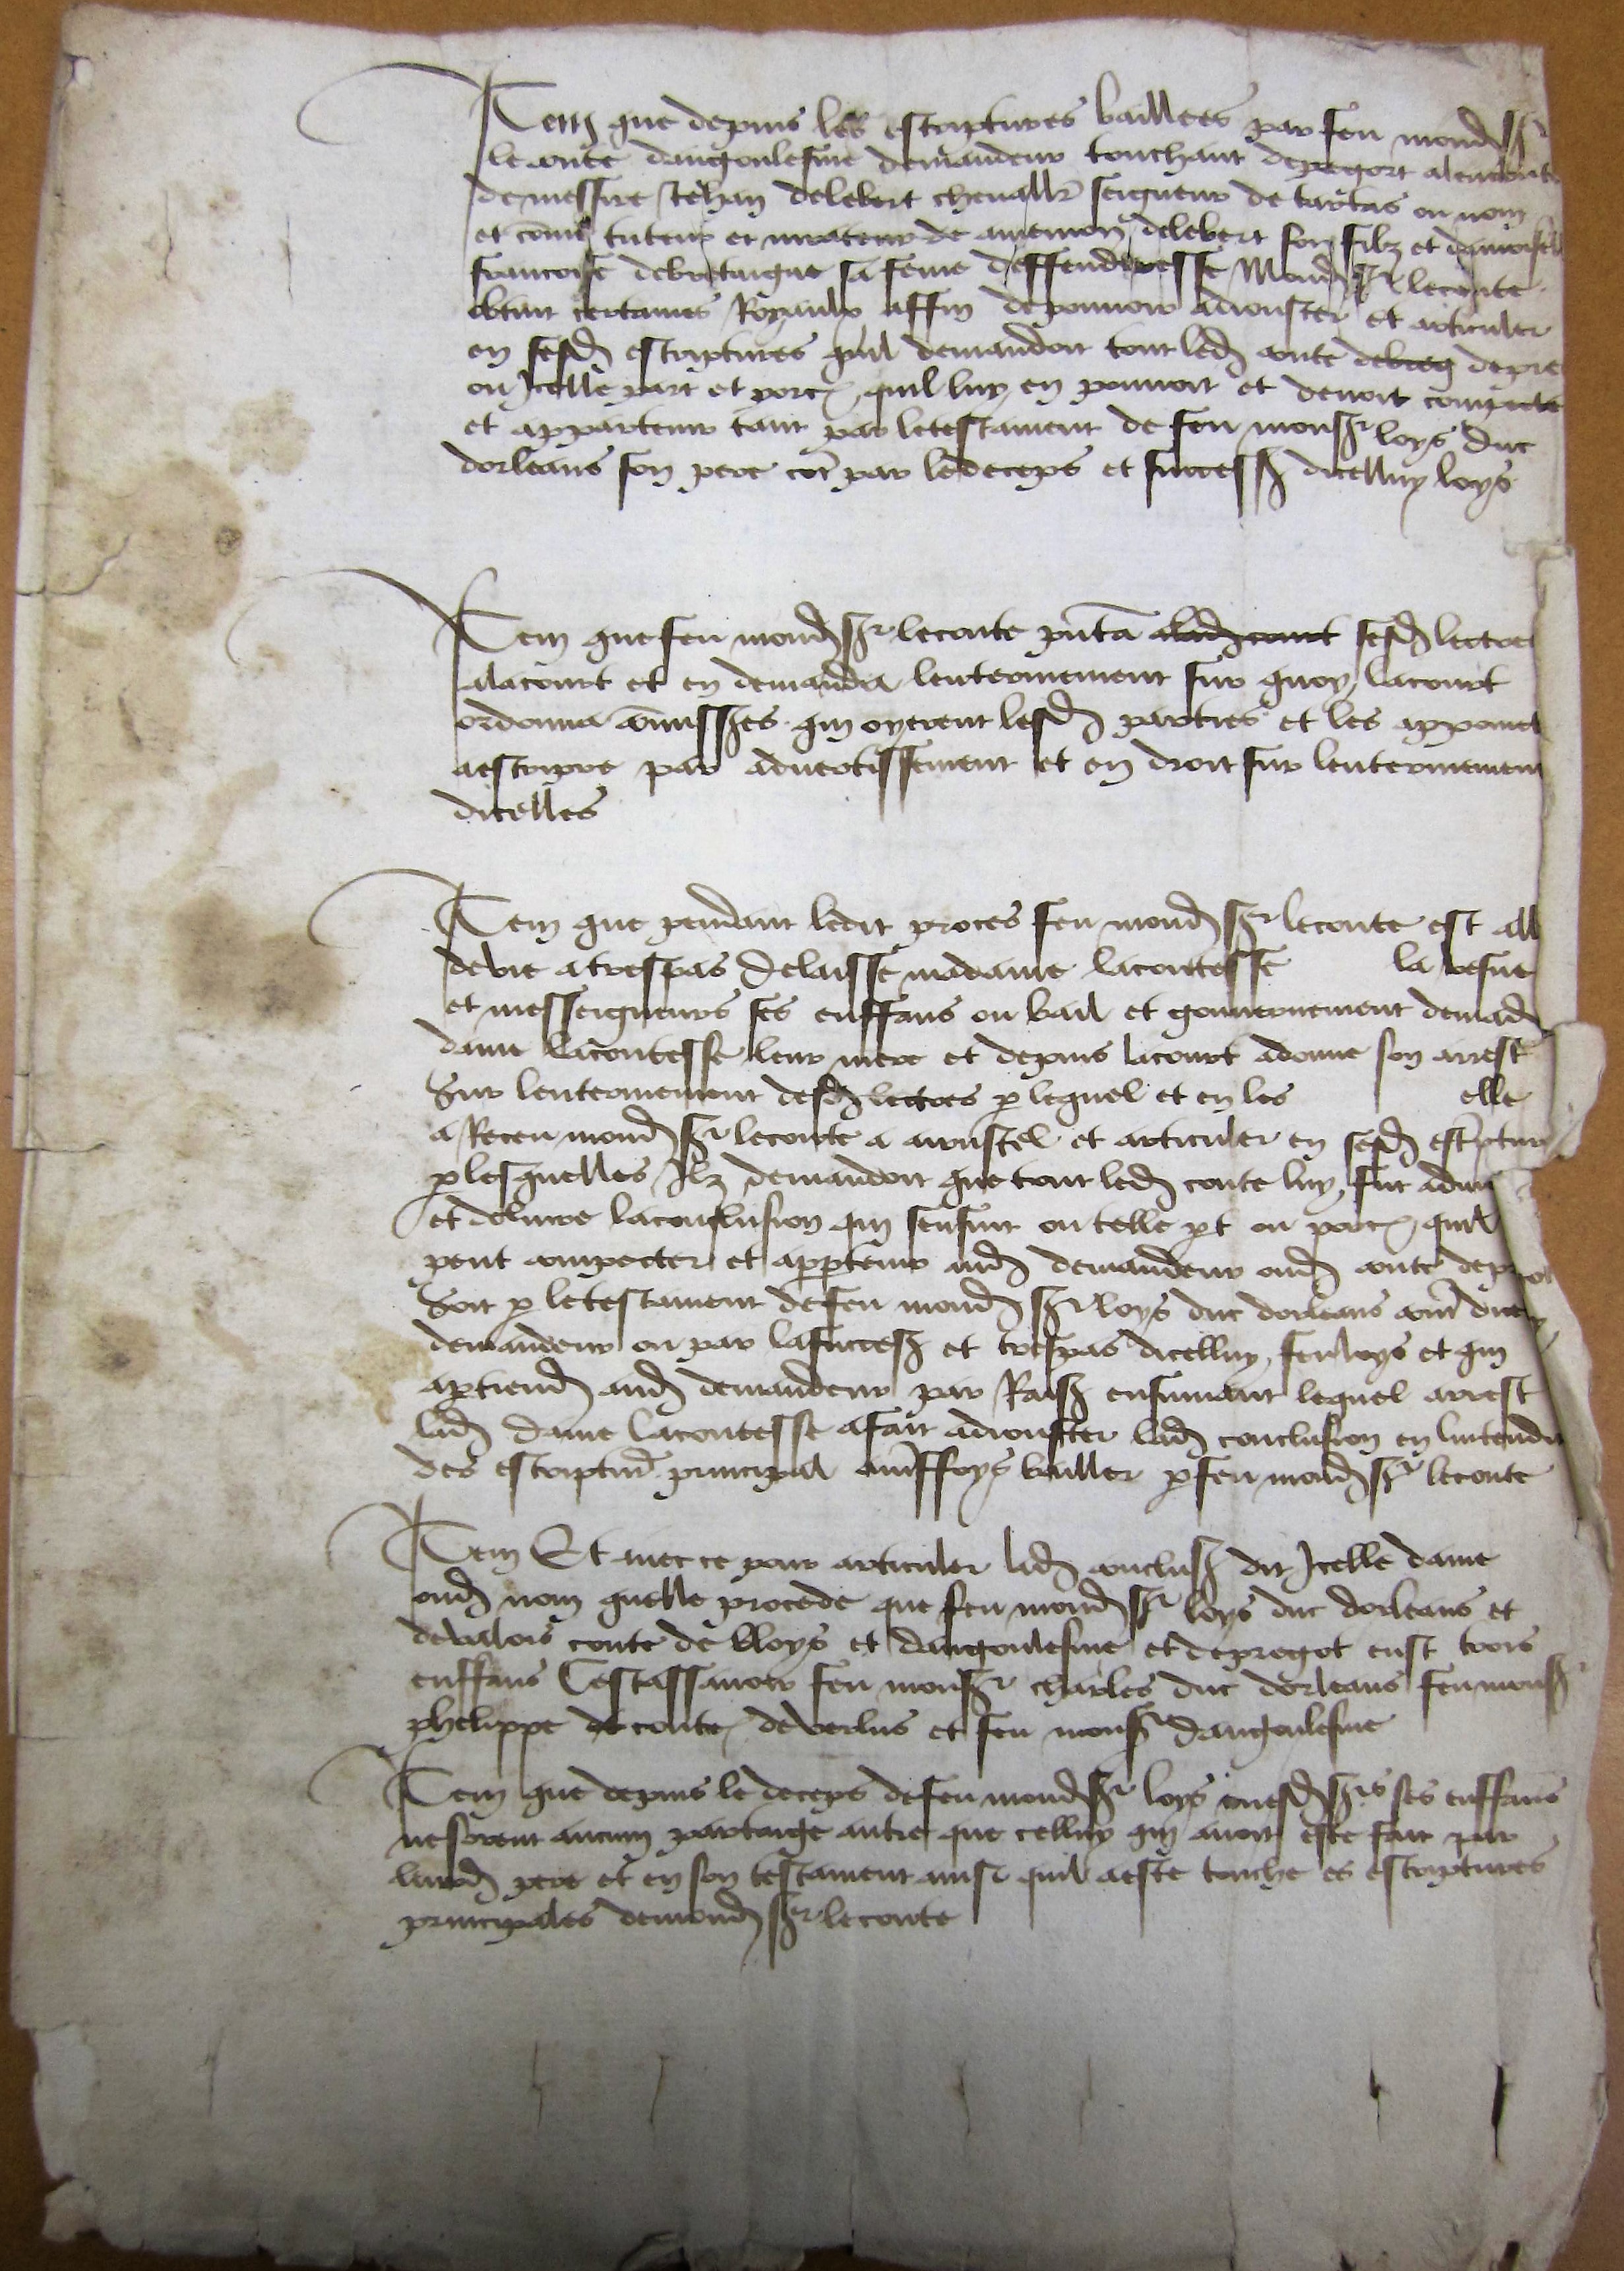 Item que depuis les escriptures baillees par feu mond sr
le conte dangoulesme demandeur touchant depregort alencont
de messire Jehan delebret chevallr seigneur de tartas ou nom
et come tuteur et curateur de delebret son filz et damoisel
francoise debretaigne sa feme deffenderesse Mond sr leconte
obtint certaines Royaulx affin depouvoir adiouster et articuler
en sesd escriptures quil demandoit tout led conte depre
ou Icelle part et porc quil luy en pouvoit et devoit compecte
et appartenir tant par letestament de feu monsr loys duc
dorleans son pere coe par ledeceps et success dicelluy loys
Item que feu mond sr leconte pnta alad court sesd lectres
alacourt et en demanda lenterinement sur quoy lacourt
ordonna comisses qui oyrent lesd parties et les appoinct
aescripre par advertissement et en droit sur lenterinement
dicelles
Item que pendant ledit proces feu mond sr leconte est all
devie atrespas delaisse madame lacontesse la vefue
et messeigneurs ses enffans ou bail et gouvernement demad
dame lacontesse leur mere et depuis lacourt adonne son arrest
Sur lenterinement desd lectres p lequel et en les elle
a Receu mond sr leconte a et articuler en sesd escriptur
p lesquelles Ilz demandoit que tout led conte luy fut
et laconclusion qui sensuit ou telle pt ou porc quil
peut compecter et appartenir aud demandeur oud conte
Soit p letestament defeu mond sr loys duc dorleans
demandeur ou par lasuccess et trespas dicelluy feu loys et qui
aud demandeur par Raiss ensuiuant lequel arrest
lad dame lacontesse afait adiouster lad conclusion en
des escriptur principal bailler p feu mond sr leconte
Item Et avec ce pour articuler lad conclus dit Icelle dame
oud nom quelle procede que feu mond sr loys duc dorleans et
devalois conte de bloys et dangoulesme et depregot eust trois
enffans Cestassavoir feu monsr charles duc dorleans feu monsr
phelippe conte devertus et feu monsr dangoulesme
Item que depuis le deceps defeu mond sr loys mesd srs ses enffans
nefirent aucun partaige autre que celluy qui avoit este fait par
leurd pere et en son testament ainsi quil aeste touche es escriptures
principales demond sr leconte